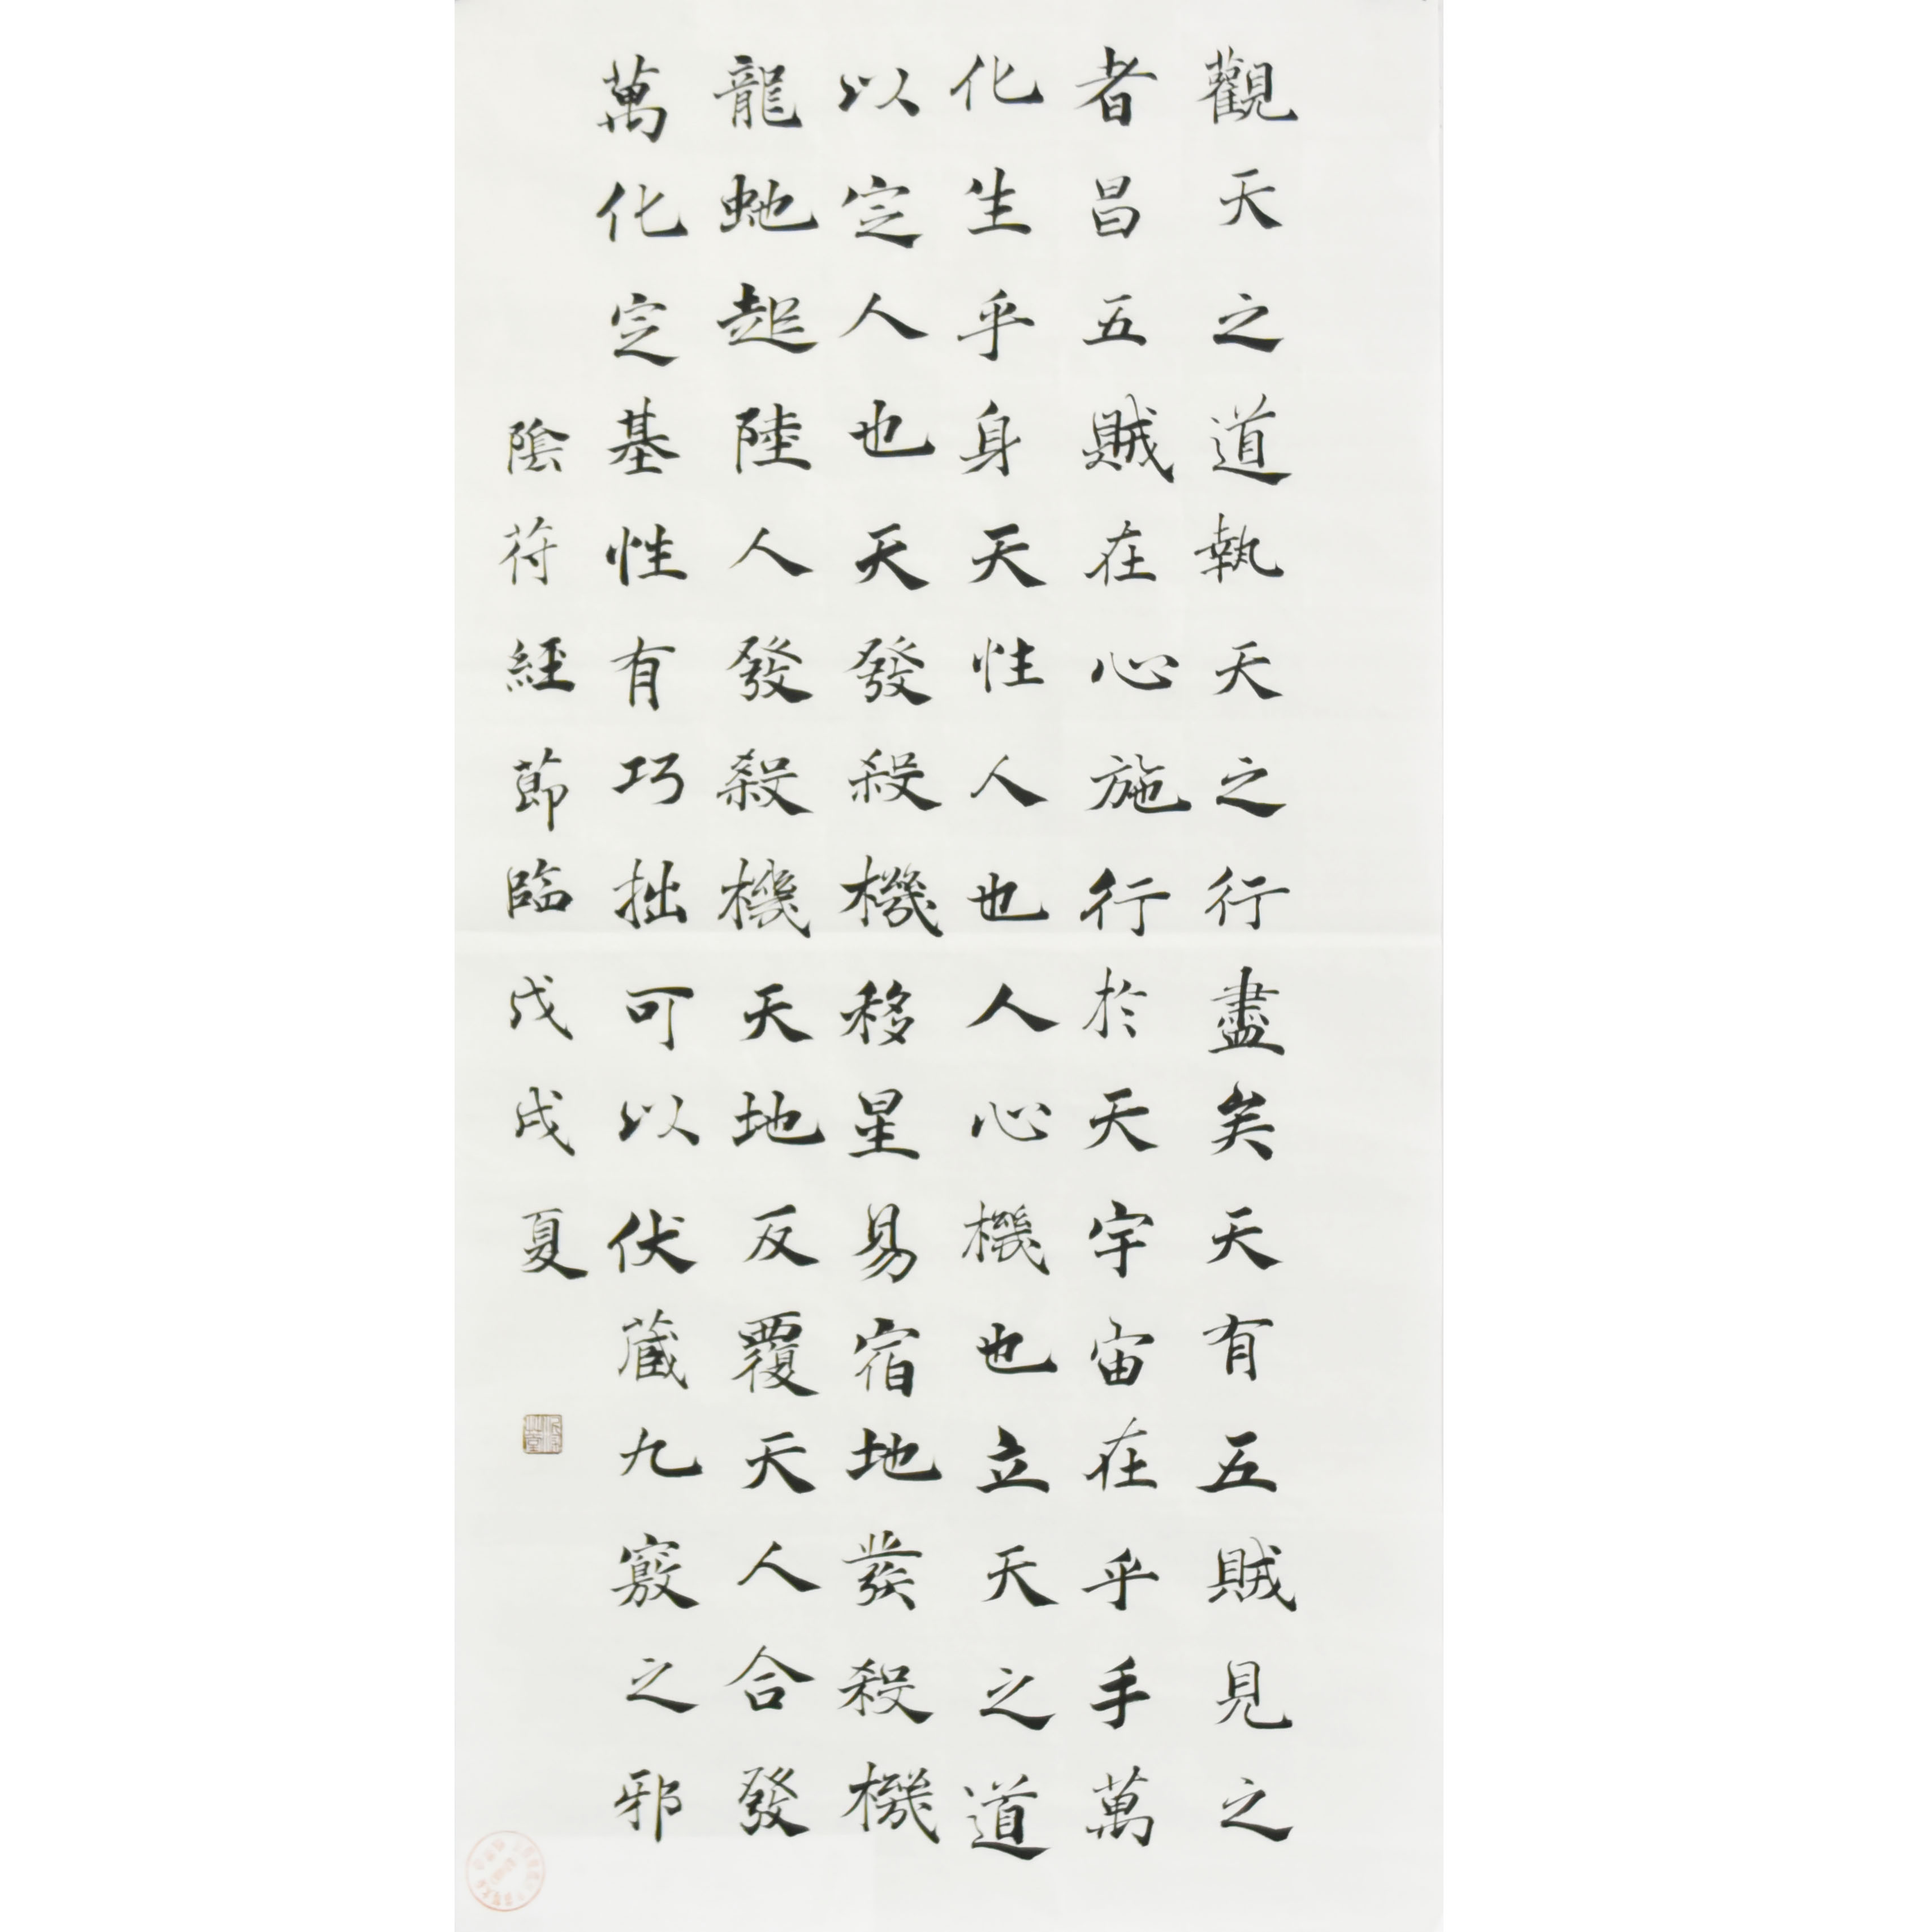 觀天之道執天之行盡矣天有五賊見之
者昌五賊在心施行於天宇宙在乎手萬
化生乎身天性人也人心機也立天之道
以定人也天發殺機移星易宿地發殺機
龍虵起陸人發殺機天地反覆天人合發
萬化定基性有巧拙可以伏藏九竅之邪
陰符經節臨戊戌夏